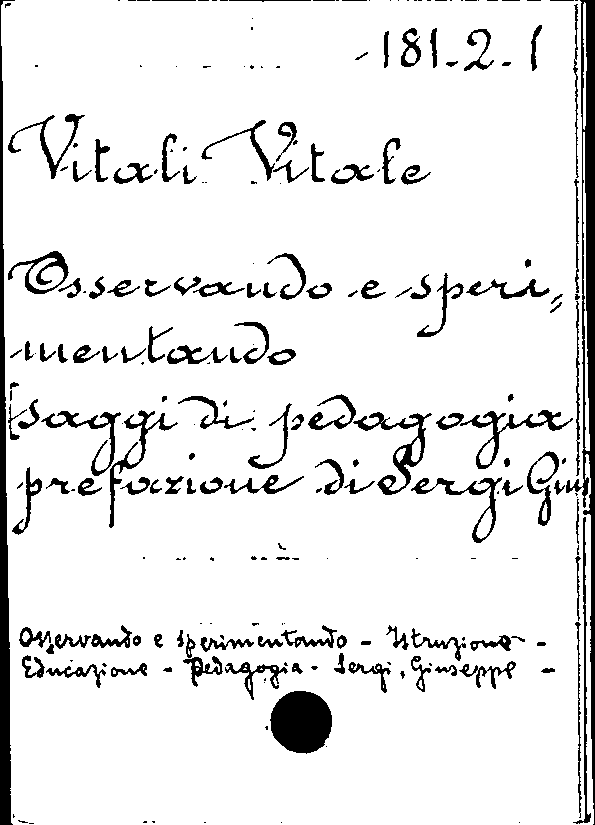 181-2-1
Vitali Vitale
Osservando e speri„
mentando
[saggi di pedagogia
prefazione di Sergi Gius
Osservando e sperimentando - Istruzione -
Educazione - Pedagogia - Sergi, Giuseppe -